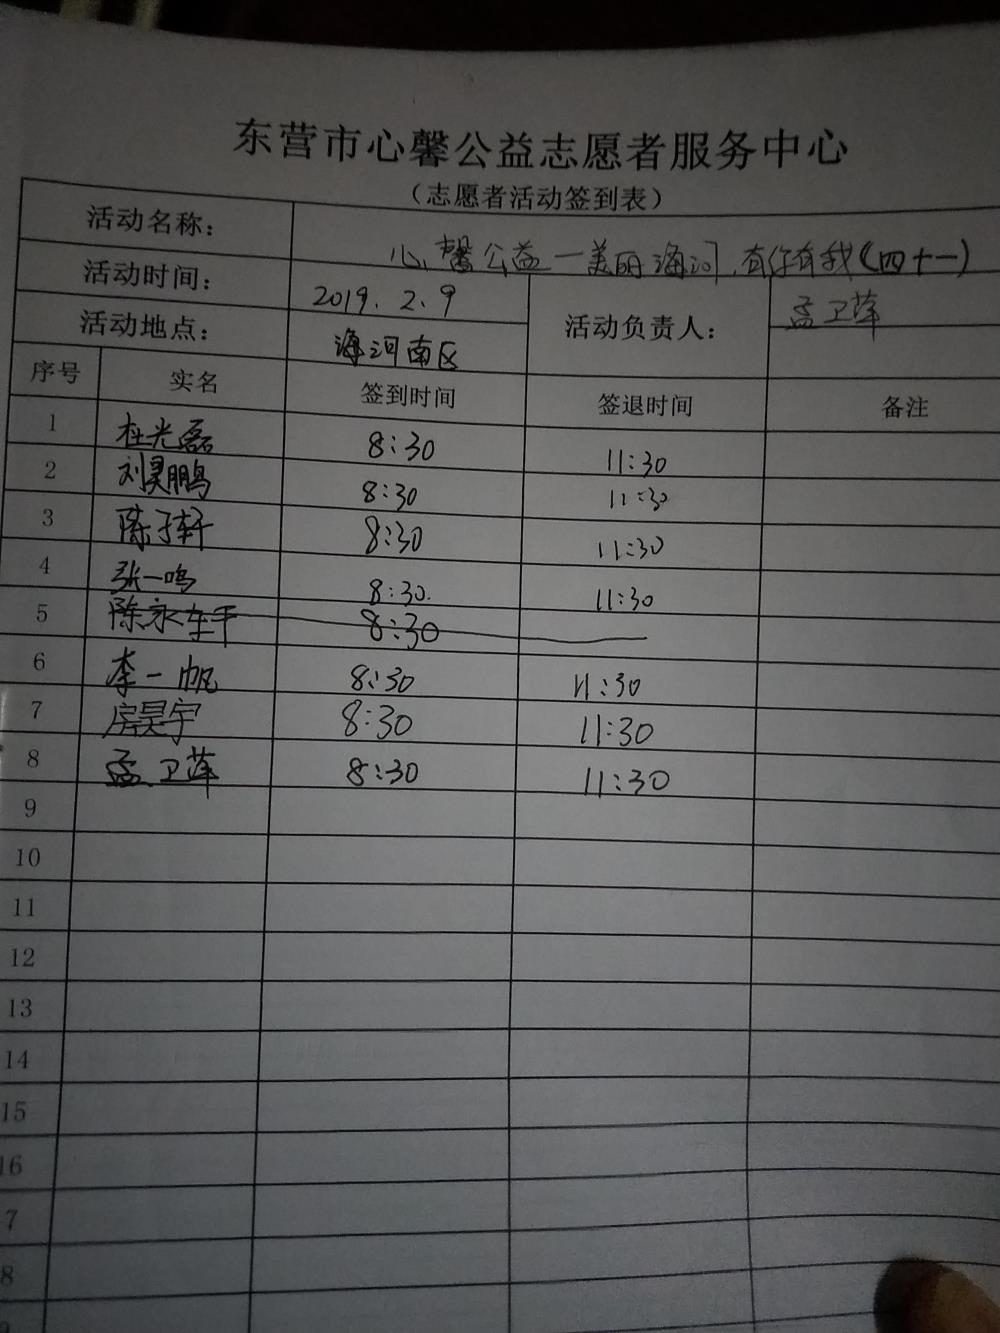 东营市心馨公益志愿者服务中心
（志愿者活动签到表）
活动名称： 心馨公益一美丽海河，有你有我（四十一）
活动时间： 2019.2.9 活动负责人： 孟卫萍
活动地点： 海河南区
序号 实名 签到时间 签退时间 备注
1 杜光磊 8:30 11:30
2 刘昊鹏 8:30 11:30
3 陈子轩 8:30 11:30
4 张一鸣 8:30. 11:30
5 陈永 8:30
6 李一帆 8:30 11:30
7 房昊宇 8:30 11:30
8 孟卫萍 8:30 11:30
9
10
11
12
13
14
15
16
7
8